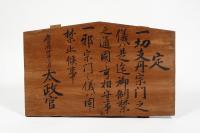 定
一切支丹宗門之
儀ハ是迄御制禁
之通固ク可相守事
一邪宗門之儀ハ固ク
禁止候事
太政官